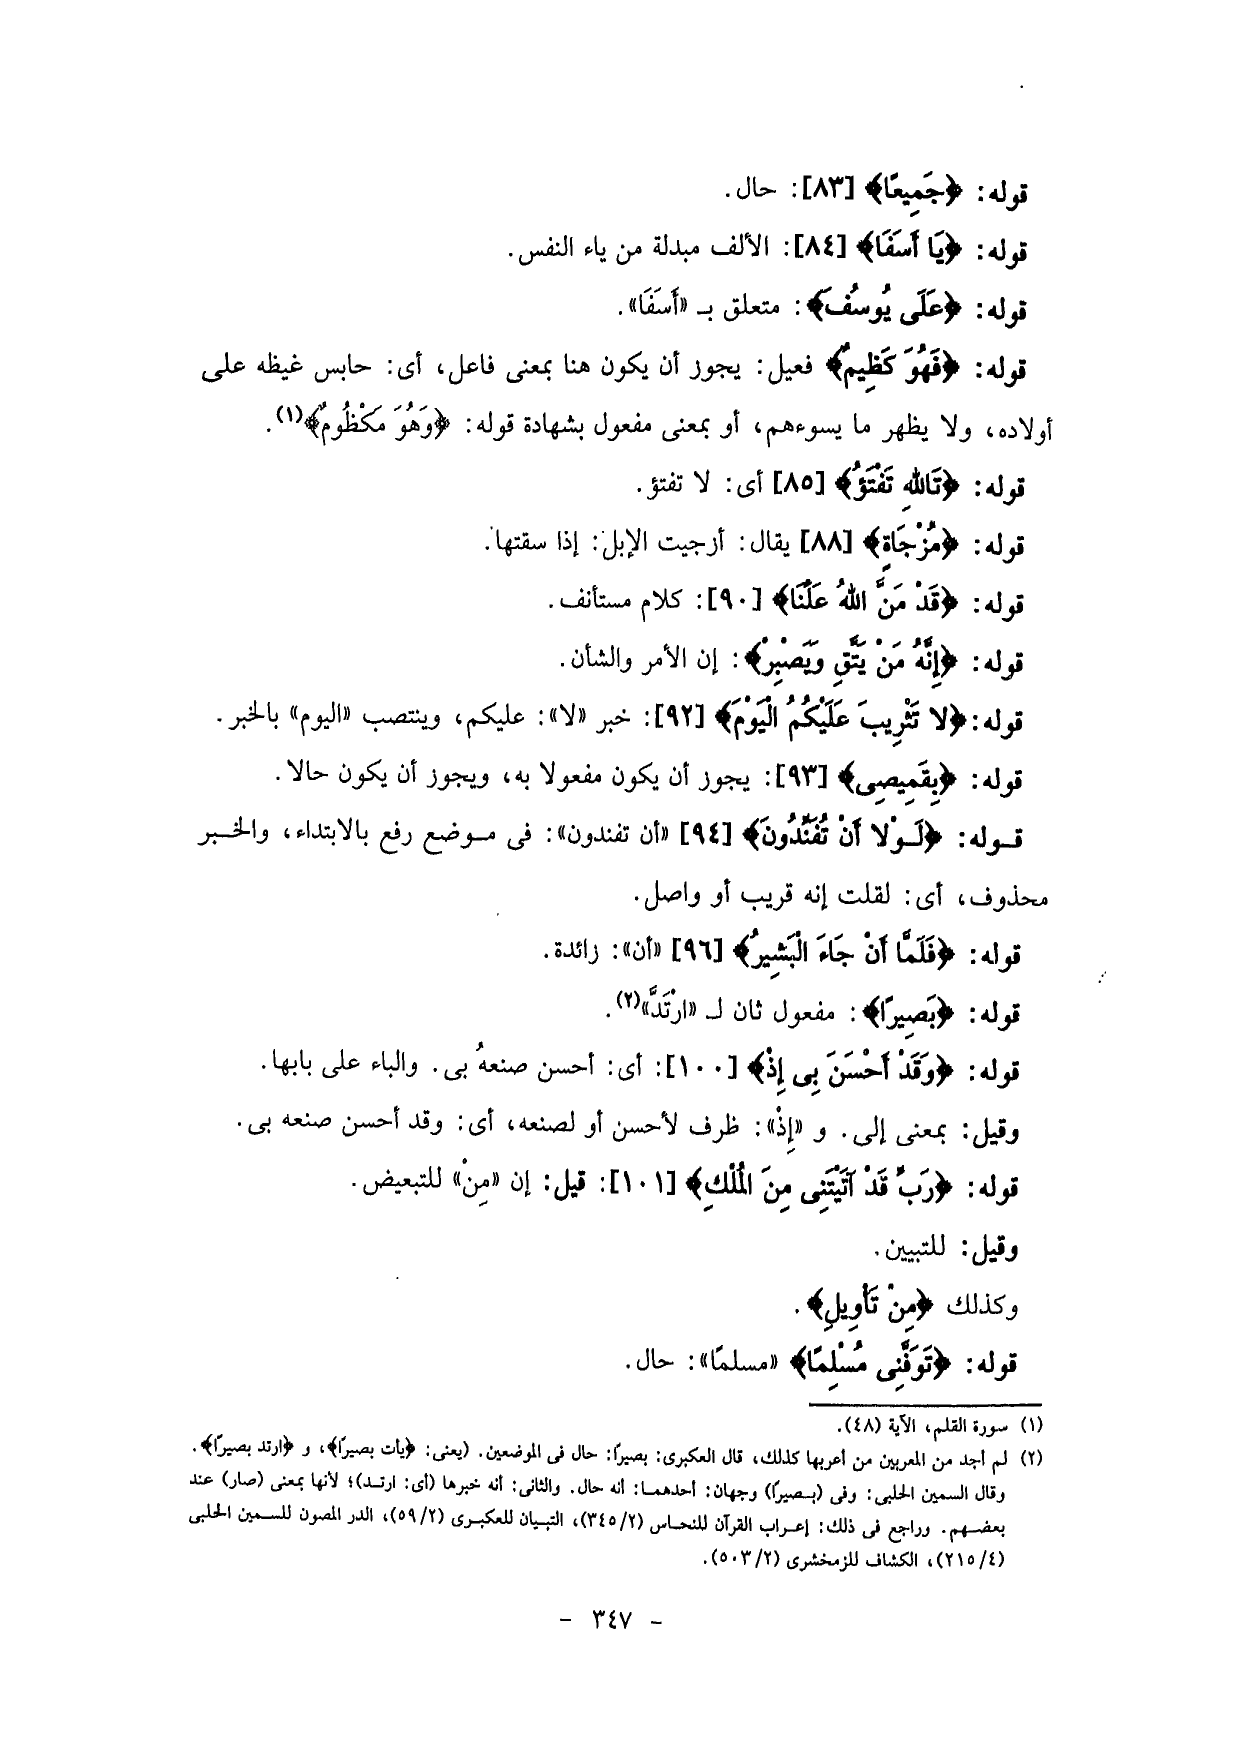 قوله: ﴿جَمِيعًا﴾ [٨٣]: حال.
قوله: ﴿يَا أَسَفَا﴾ [٨٤]: الألف مبدلة من ياء النفس.
قوله: ﴿عَلَى يُوسُفَ﴾: متعلق بـ «أَسَفَا».
قوله: ﴿فَهُوَ كَظِيمٌ﴾ فعيل: يجوز أن يكون هنا بمعنى فاعل، أى: حابس غيظه على
أولاده، ولا يظهر ما يسوءهم، أو بمعنى مفعول بشهادة قوله: ﴿وَهُوَ مَكْظُومٌ﴾(١).
قوله: ﴿تَاللهِ تَفْتَؤُ﴾ [٨٥] أى: لا تفتؤ.
قوله: ﴿مُزْجَاةٍ﴾ [٨٨] يقال: أزجيت الإبل: إذا سقتها.
قوله: ﴿قَدْ مَنَّ اللهُ عَلَيْنَا﴾ [٩٠]: كلام مستأنف.
قوله: ﴿إِنَّهُ مَنْ يَتَّقِ وَيَصْبِرْ﴾: إن الأمر والشأن.
قوله: ﴿لا تَثْرِيبَ عَلَيْكُمُ الْيَوْمَ﴾ [٩٢]: خبر «لا»: عليكم، وينتصب «اليوم» بالخبر.
قوله: ﴿بِقَمِيصِى﴾ [٩٣]: يجوز أن يكون مفعولا به، ويجوز أن يكون حالا.
قوله: ﴿لَوْلا أَنْ تُفَنِّدُونَ﴾ [٩٤] «أن تفندون»: فى موضع رفع بالابتداء، والخبر
محذوف، أى: لقلت إنه قريب أو واصل.
قوله: ﴿فَلَمَّا أَنْ جَاءَ الْبَشِيرُ﴾ [٩٦] «أن»: زائدة.
قوله: ﴿بَصِيرًا﴾: مفعول ثان لـ «ارْتَدَّ»(٢).
قوله: ﴿وَقَدْ أَحْسَنَ بِى إِذْ﴾ [١٠٠]: أى: أحسن صنعهُ بى. والباء على بابها.
وقيل: بمعنى إلى. و «إِذْ»: ظرف لأحسن أو لصنعه، أى: وقد أحسن صنعه بى.
قوله: ﴿رَبِّ قَدْ آتَيْتَنِى مِنَ الْمُلْكِ﴾ [١٠١]: قيل: إن «مِنْ» للتبعيض.
وقيل: للتبيين.
وكذلك ﴿مِنْ تَأْوِيلِ﴾.
قوله: ﴿تَوَفَّنِى مُسْلِمًا﴾ «مسلمًا»: حال.
(١) سورة القلم، الآية (٤٨).
(٢) لم أجد من المعربين من أعربها كذلك، قال العكبرى: بصيرًا: حال فى الموضعين. (يعنى: ﴿يأت بصيرًا﴾، و ﴿ارتد بصيرًا﴾.
وقال السمين الحلبى: وفى (بصيرًا) وجهان: أحدهما: أنه حال. والثانى: أنه خبرها (أى: ارتد)؛ لأنها بمعنى (صار) عند
بعضهم. وراجع فى ذلك: إعراب القرآن للنحاس (٣٤٥/٢)، التبيان للعكبرى (٥٩/٢)، الدر المصون للسمين الحلبى
(٢١٥/٤)، الكشاف للزمخشرى (٥٠٣/٢).
- ٣٤٧ -